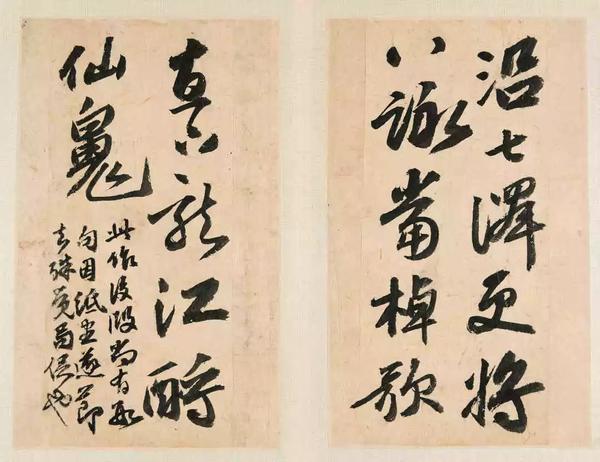 沿七澤更將
八詠當棹歌
直下龍江酹
仙魄
此作後段尚有數
句因紙盡遂節
去殊覺局促也